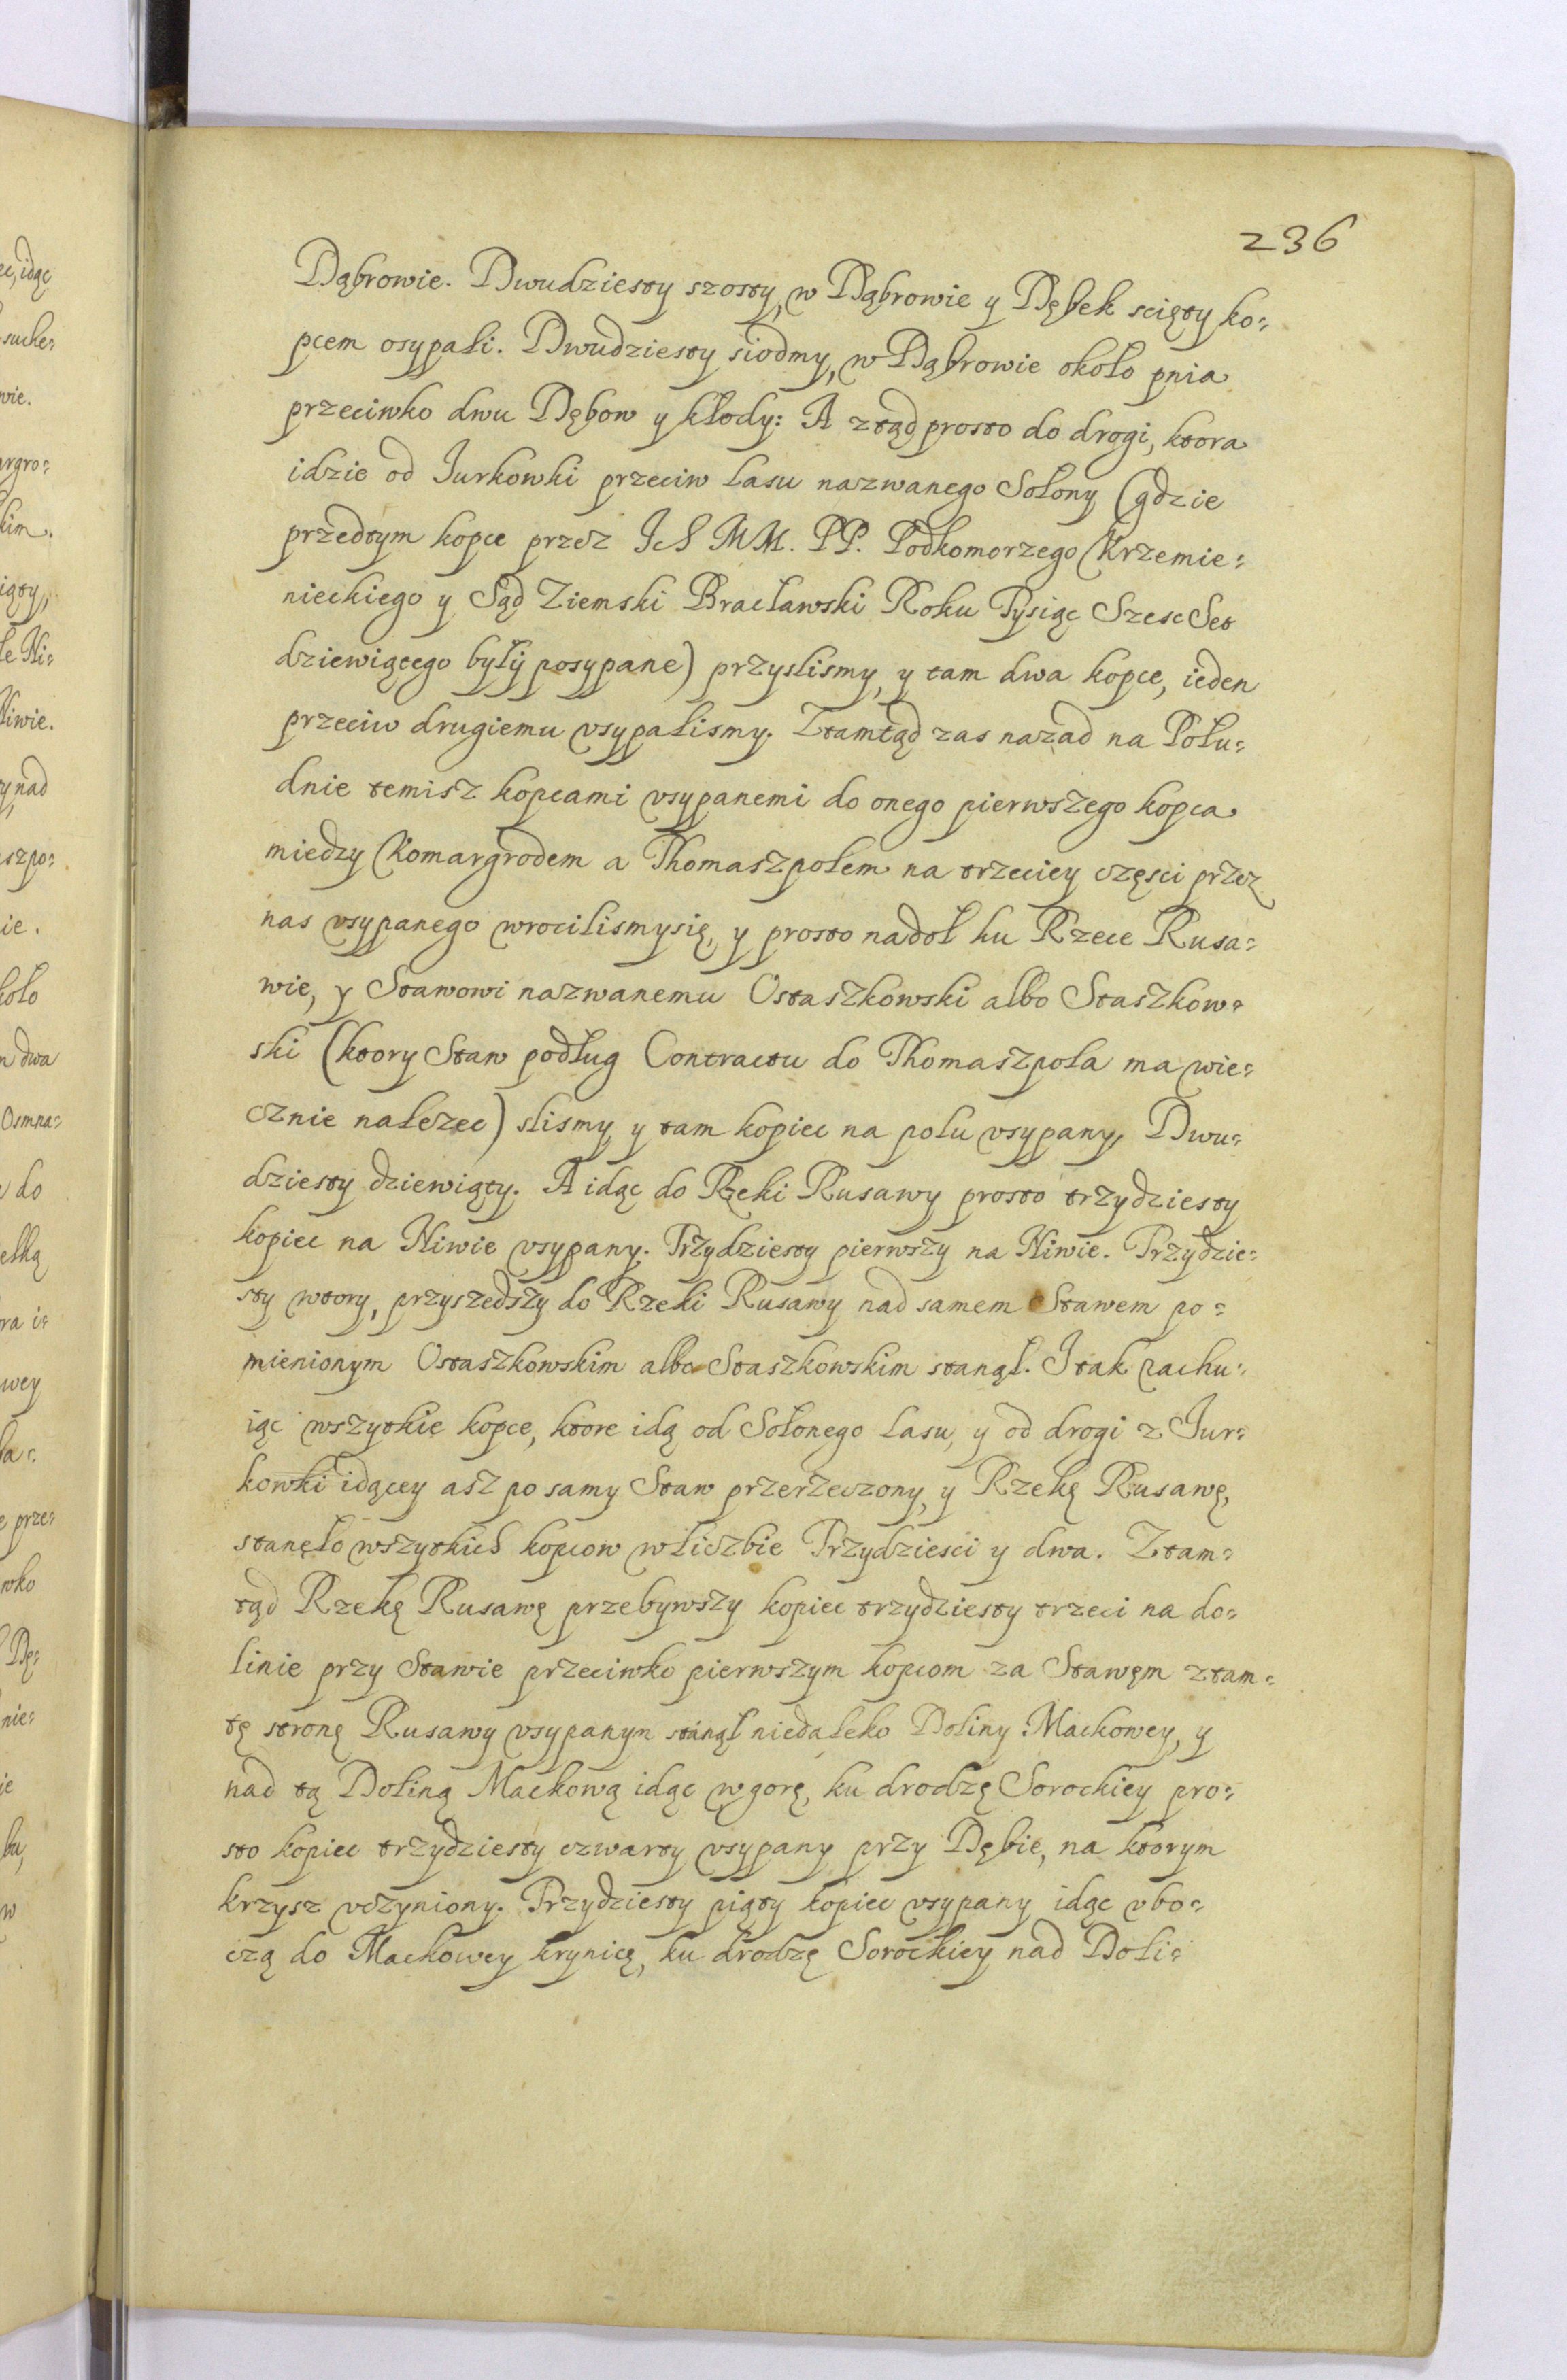 236
Dąbrowie. Dwudziesty szosty, w Dąbrowie y Dębek scięty ko=
pcem osypali. Dwudziesty siodmy, w Dąbrowie około pnia
przeciwko dwu Dębow y kłody: A ztąd prosto do drogi, ktora
idzie od Jurkowki przeciw lasu nazwanego Solony (gdzie
przedtym kopce przez Ich MM. PP. Podkomorzego Krzemie=
nieckiego y Sąd Ziemski Bracławski Roku Tysiąc Szesc Set
dziewiącego były posypane) przyslismy, y tam dwa kopce, ieden
przeciw drugiemu vsypalismy. Ztamtąd zas nazad na Połu=
dnie temisz kopcami vsypanemi do onego pierwszego kopca
miedzy Komargrodem a Thomaszpolem na trzeciey części przez
nas vsypanego wrocilismysię, y prosto nadoł ku Rzece Rusa=
wie, y Stawowi nazwanemu Ostaszkowski albo Staszkow=
ski (ktory Staw podług Contractu do Thomaszpola ma wie=
cznie nalezec) slismy y tam kopiec na polu vsypany, Dwu=
dziesty dziewiąty. A idąc do Rzeki Rusawy prosto trzydziesty
kopiec na Niwie vsypany. Trzydziesty pierwszy na Niwie. Trzydzie=
sty wtory, przyszedszy do Rzeki Rusawy nad samem Stawem po=
mienionym Ostaszkowskim albo Staszkowskim stanął. I tak rachu=
iąc wszytkie kopce, ktore idą od Solonego lasu, y od drogi z Jur=
kowki idącey asz po samy Staw przerzeczony, y Rzekę Rusawę,
stanęło wszytkich kopcow w liczbie Trzydziesci y dwa. Ztam=
tąd Rzekę Rusawę przebywszy kopiec trzydziesty trzeci na do=
linie przy Stawie przeciwko pierwszym kopcom za Stawem z tam=
tę stronę Rusawy vsypanym stanął niedaleko Doliny Mackowey, y
nad tą Doliną Mackową idąc w gorę, ku drodzę Sorockiey pro=
sto kopiec trzydziesty czwarty vsypany przy Dębie, na ktorym
krzysz vczyniony. Trzydziesty piąty kopiec vsypany idąc vbo=
czą do Mackowey krynicę, ku drodzę Sorockiey nad Doli=